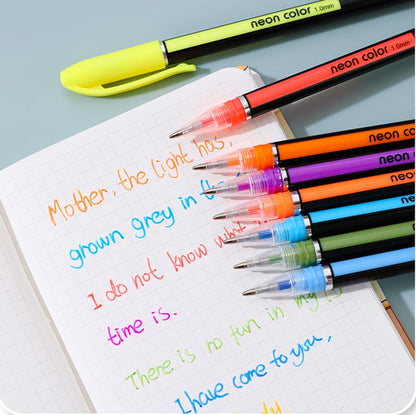 neon color 1.0mm
neon color 1.0mm
neon color
neon color
neon co
neon
neon
Mother, the light has,
grown grey in th
I do not know what
time is.
There is no fun in my
I have come to you,
dy